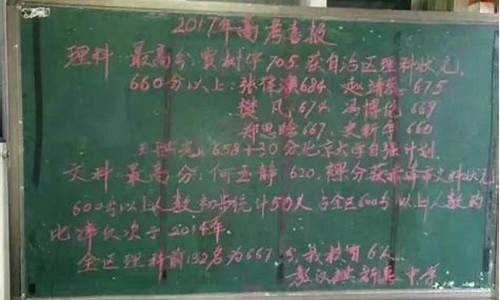 2017年高考喜报
理科:最高分:贾树华705.获自治区理科状元.
660分以上:张 684 赵 675
樊 凤 674 冯博伦 669
郑思 667. 史新年 660
王 658+30分北京大学自强计划.
文科:最高分:何孟静 620.裸分获 市文科状元
600分以上人数初步统计50人占全区600分以上人数的
比率仅次于2014年.
全区理科前132名为667分,我校有6人
中学